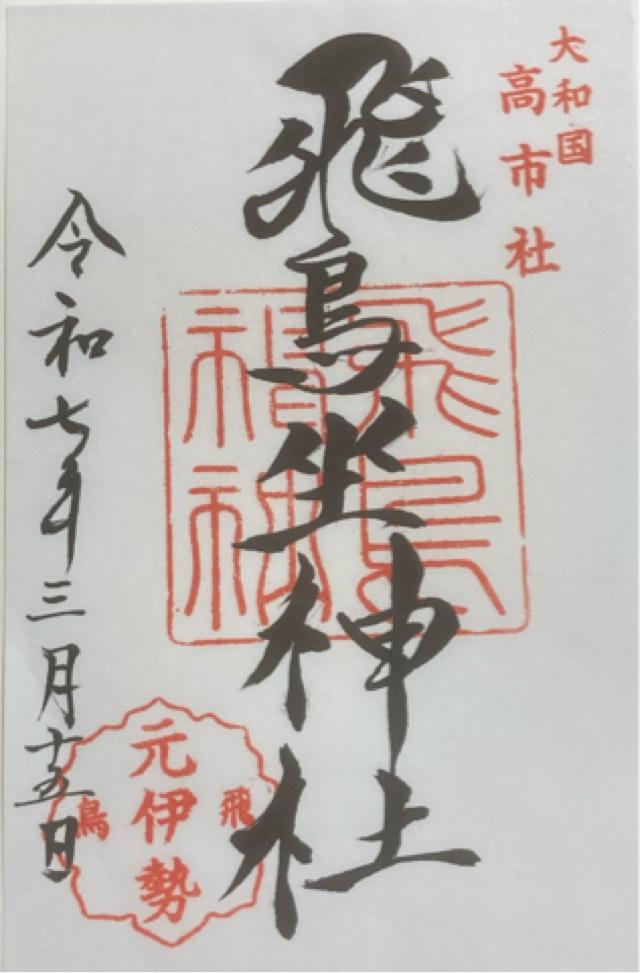 大和国
高市社
飛鳥坐神社
飛鳥
神社
令和七年三月十五日
飛鳥
元伊勢